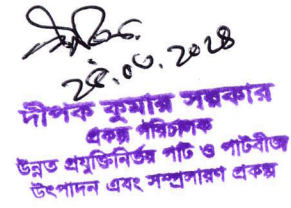 ২৫.০৬.২০২৪
দীপক কুমার সরকার
প্রকল্প পরিচালক
উন্নত প্রযুক্তিনির্ভর পাট ও পাটবীজ
উৎপাদন এবং সম্প্রসারণ প্রকল্প